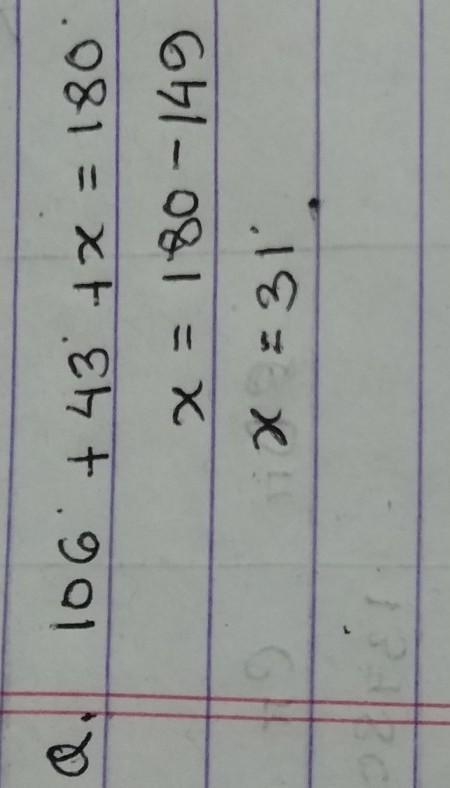 a. 106° + 43° + x = 180°
x = 180 - 149
x = 31°